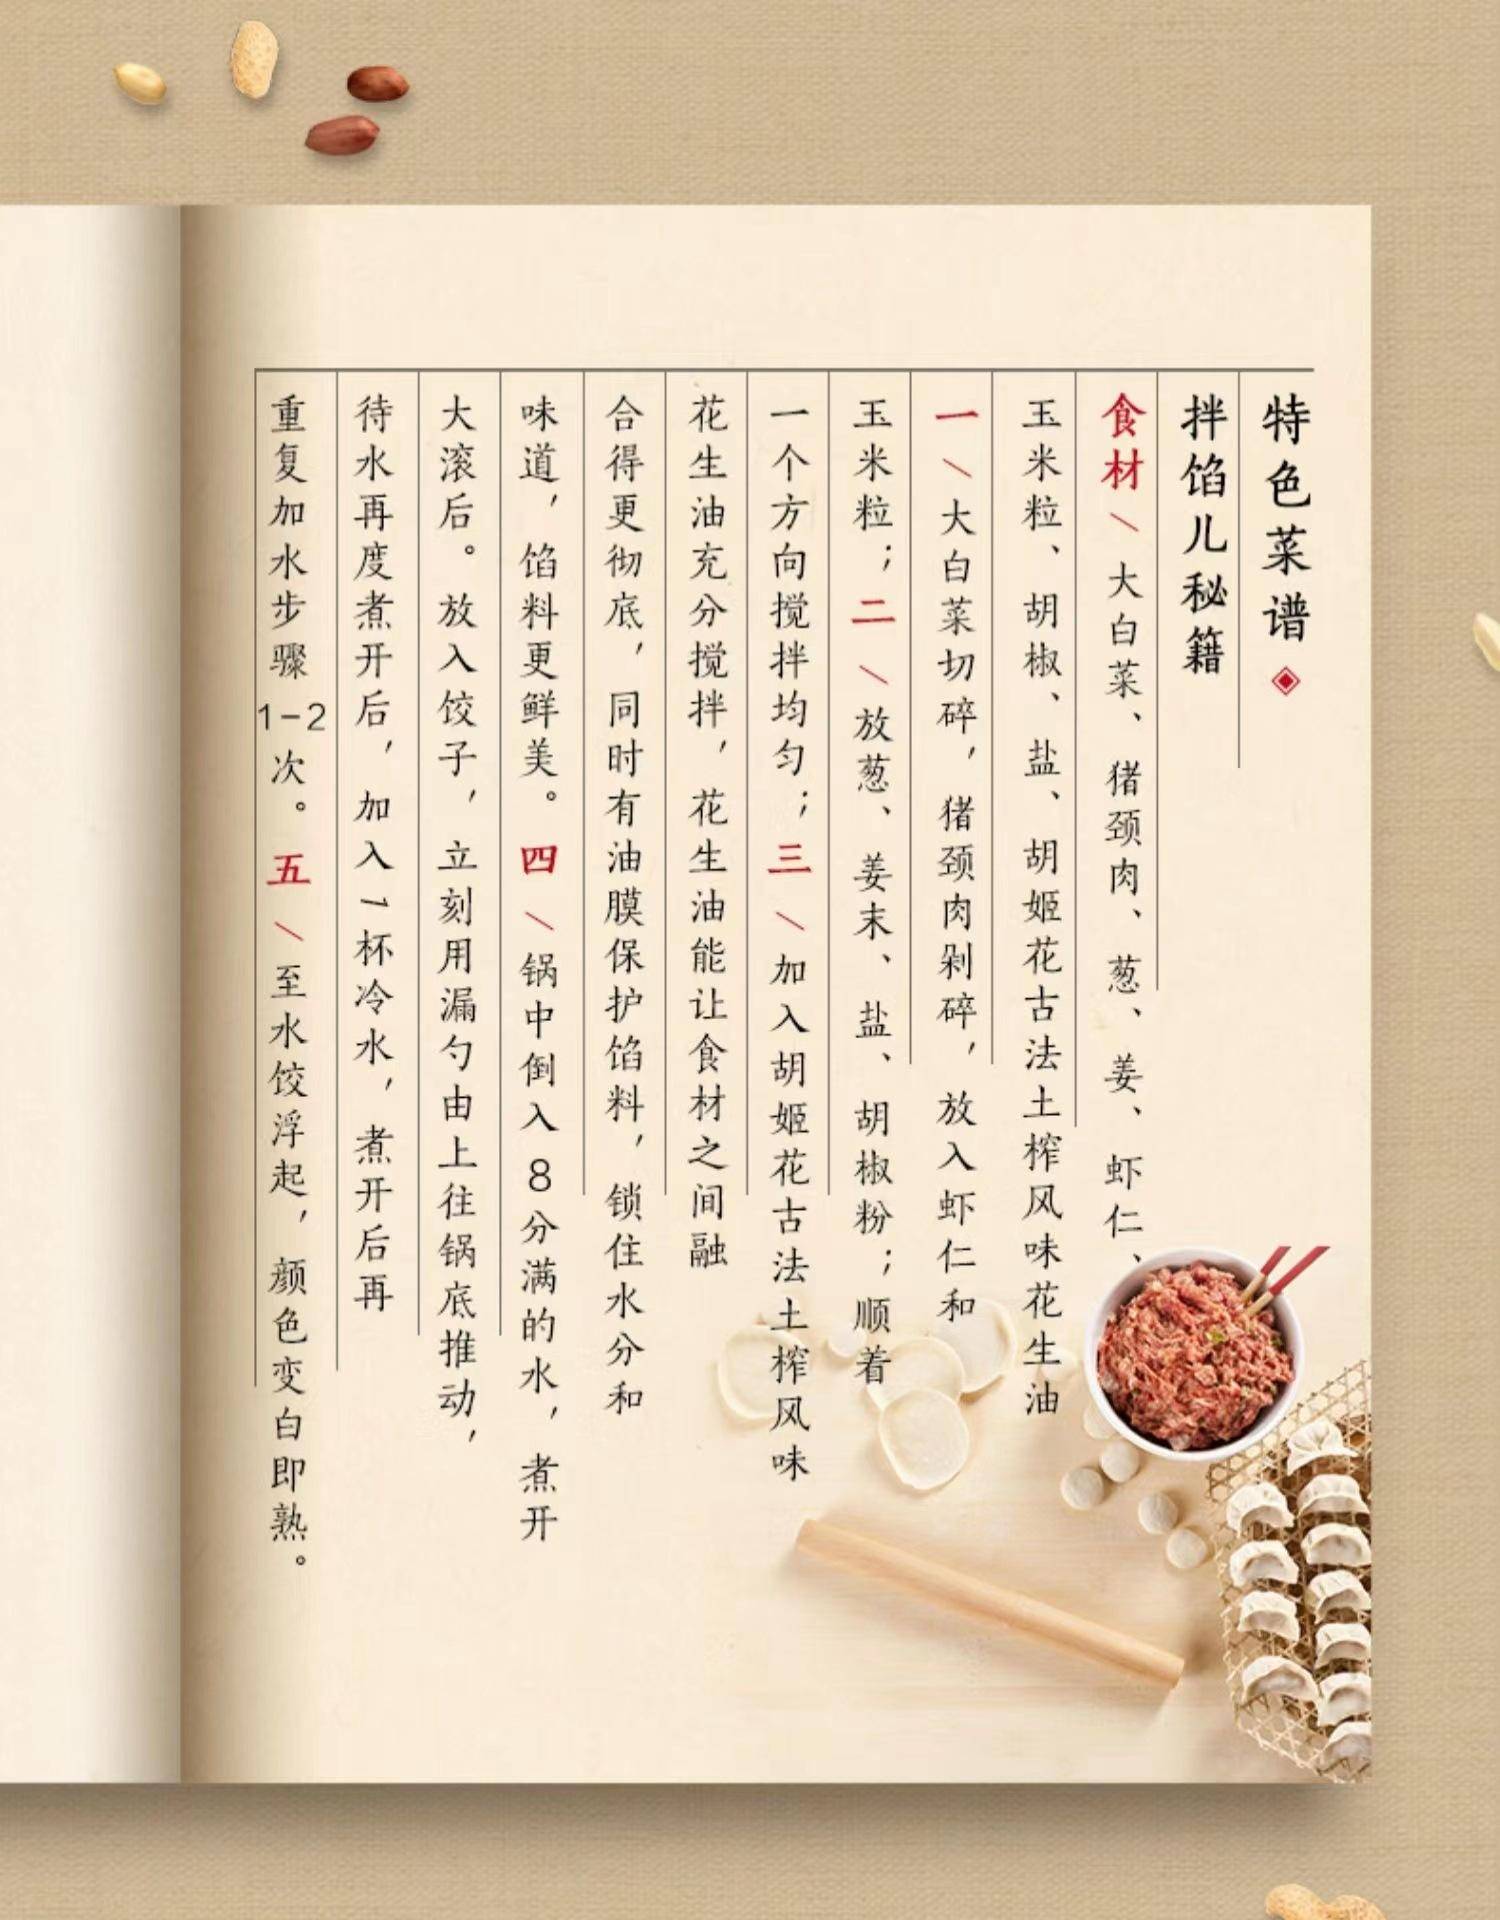 特色菜谱
拌馅儿秘籍
食材\大白菜、猪颈肉、葱、姜、虾仁、
玉米粒、胡椒、盐、胡姬花古法土榨风味花生油
一\大白菜切碎，猪颈肉剁碎，放入虾仁和
玉米粒；二\放葱、姜末、盐、胡椒粉；顺着
一个方向搅拌均匀；三\加入胡姬花古法土榨风味
花生油充分搅拌，花生油能让食材之间融
合得更彻底，同时有油膜保护馅料，锁住水分和
味道，馅料更鲜美。四\锅中倒入8分满的水，煮开
大滚后。放入饺子，立刻用漏勺由上往锅底推动，
待水再度煮开后，加入1杯冷水，煮开后再
重复加水步骤1-2次。五\至水饺浮起，颜色变白即熟。